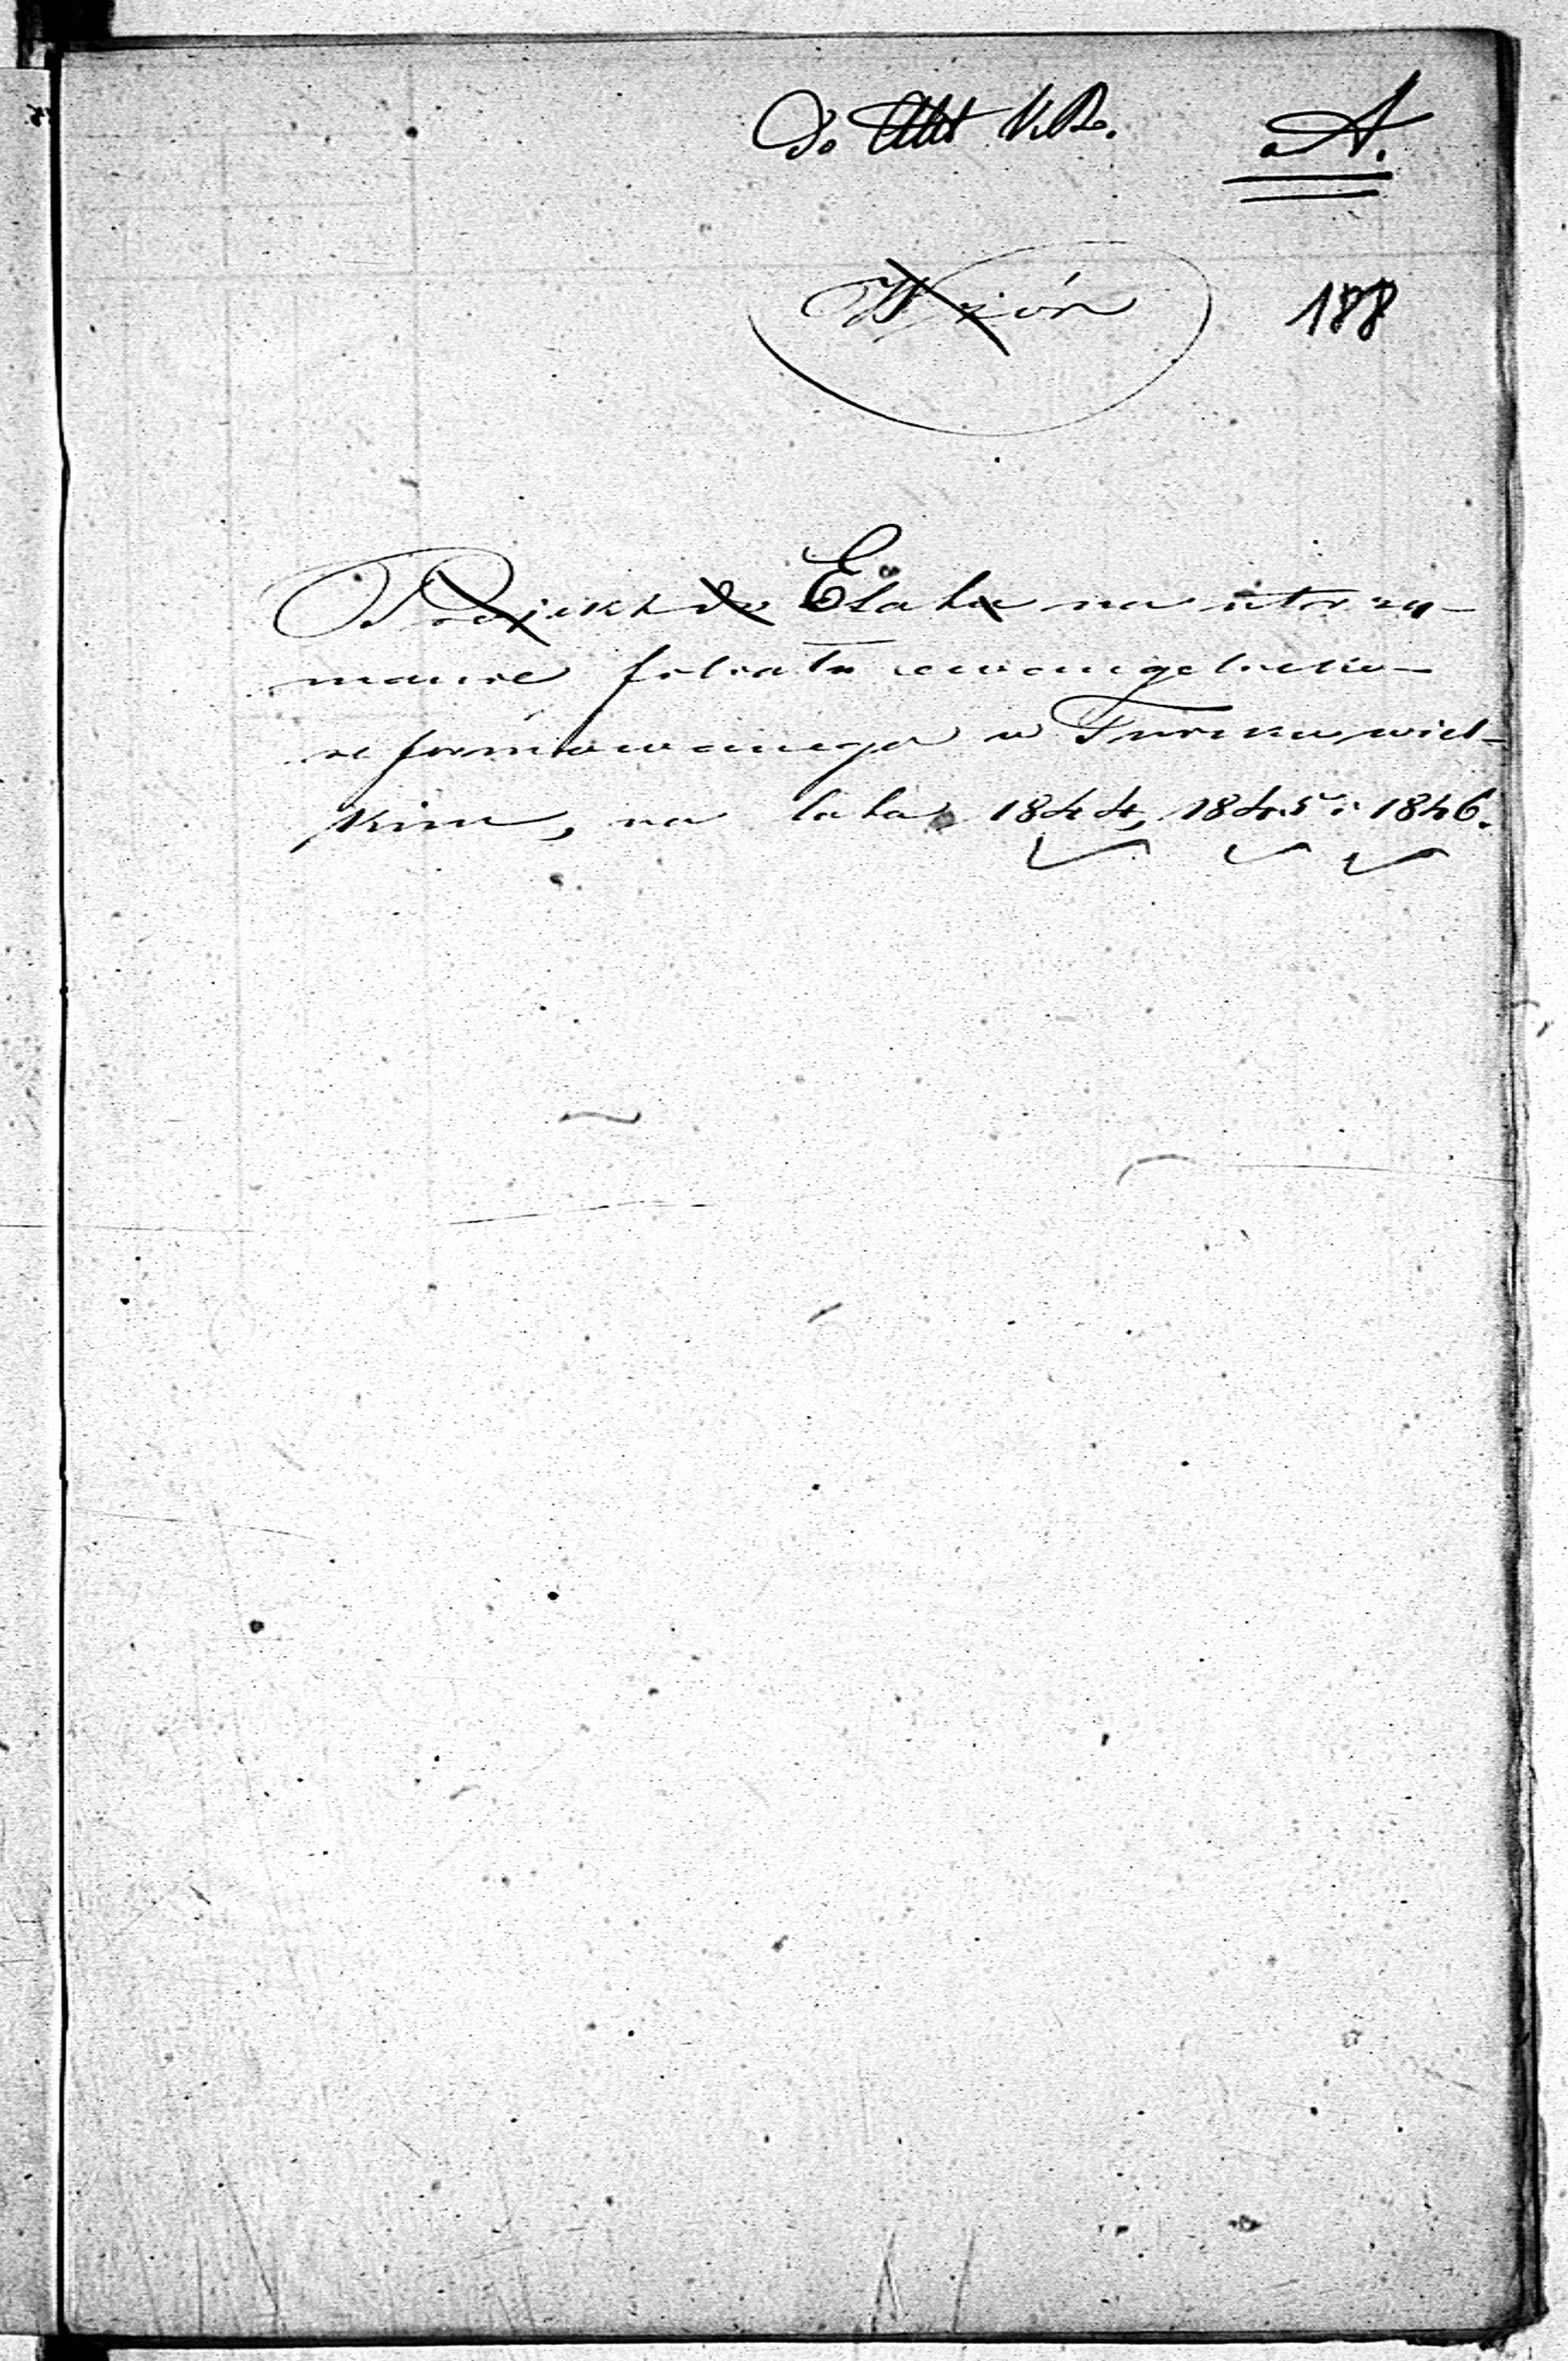 Do K.R. A.
Wzór 188
Projekt do Etatu na utrzy-
manie filiału ewangelicko-
reformowanego w Turku wiel-
kim, na lata 1844, 1845 i 1846.